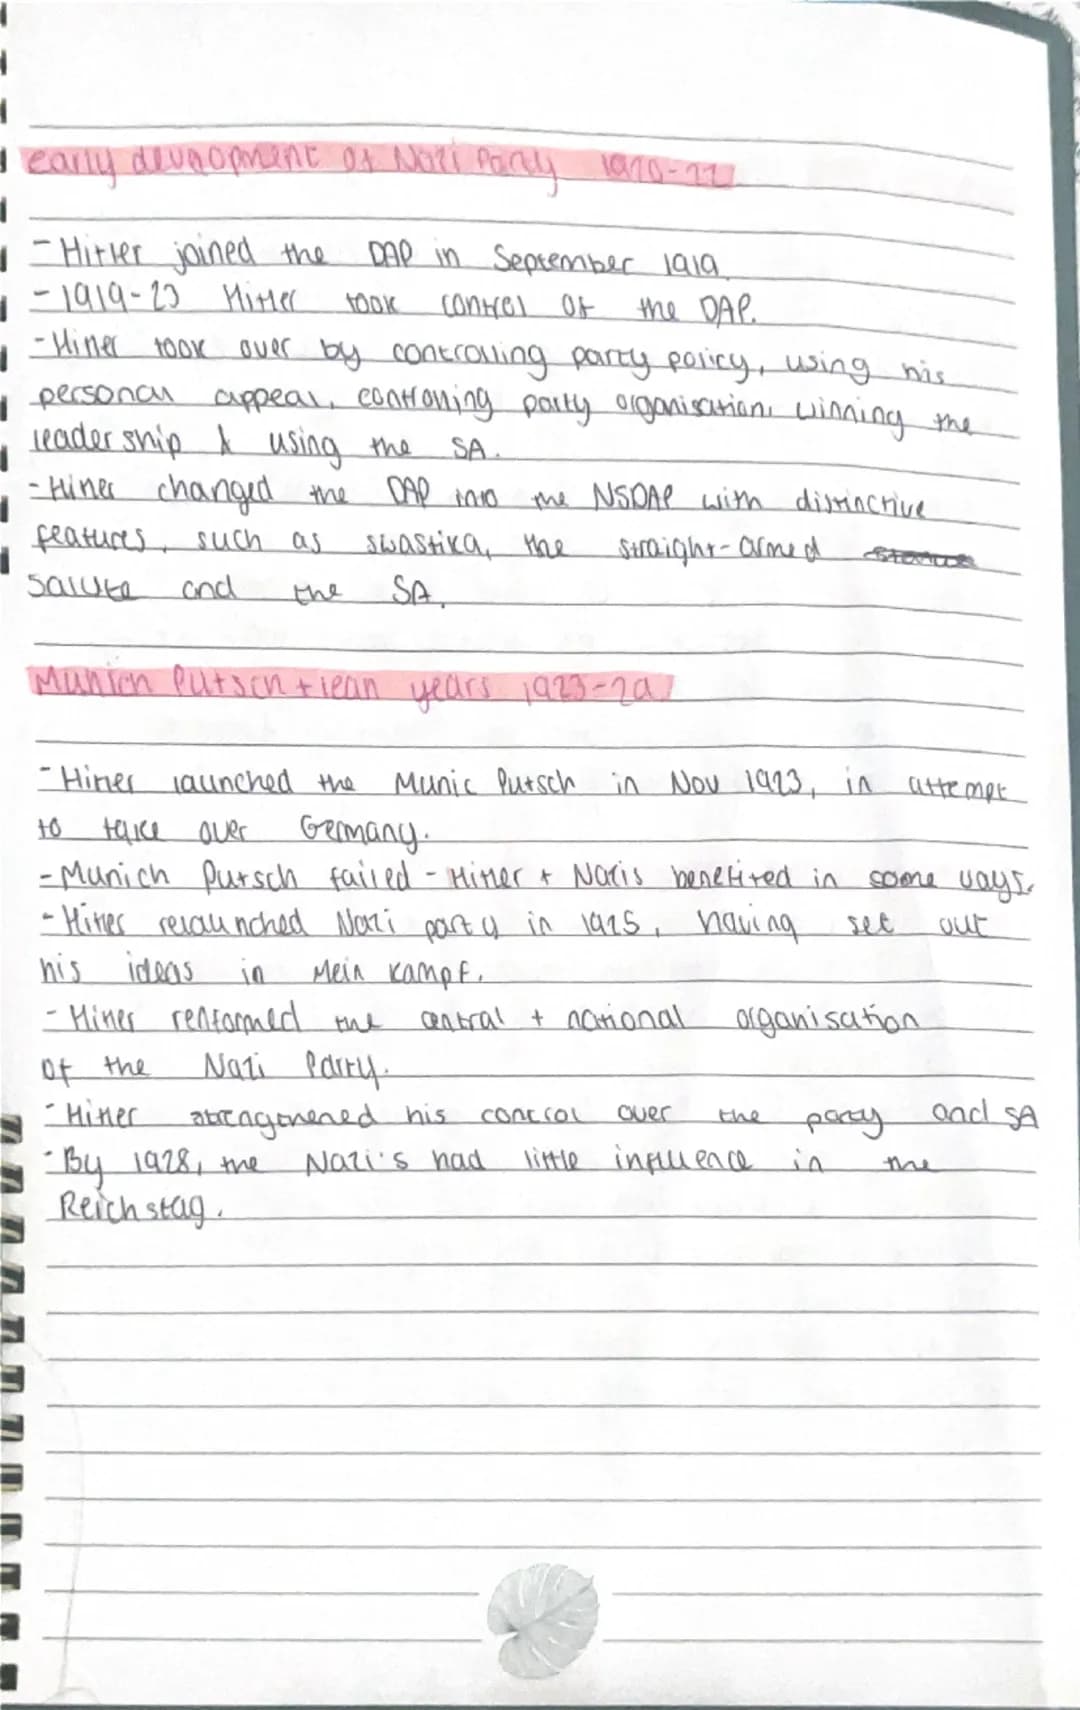 early development of Nazi Party 1920-22
- Hitler joined the DAP in September 1919
- 1919-23 Hitler took control of the DAP.
- Hitler took over by controlling party policy, using his
personal appeal, controlling party organisation, winning the
leadership & using the SA.
- Hitler changed the DAP into the NSDAP with distinctive
features, such as swastika, the straight-armed
salute and the SA.
Munich Putsch + lean years 1923-29
- Hitler launched the Munic Putsch in Nov 1923, in attempt
to take over Germany.
- Munich Putsch failed - Hitler + Nazis benefited in some ways.
- Hitler relaunched Nazi party in 1925, having set out
his ideas in Mein Kampf.
- Hitler the central + national organisation
of the Nazi Party.
- Hitler strengthened his control over the party and SA
- By 1928, the Nazi's had little influence in the
Reichstag.